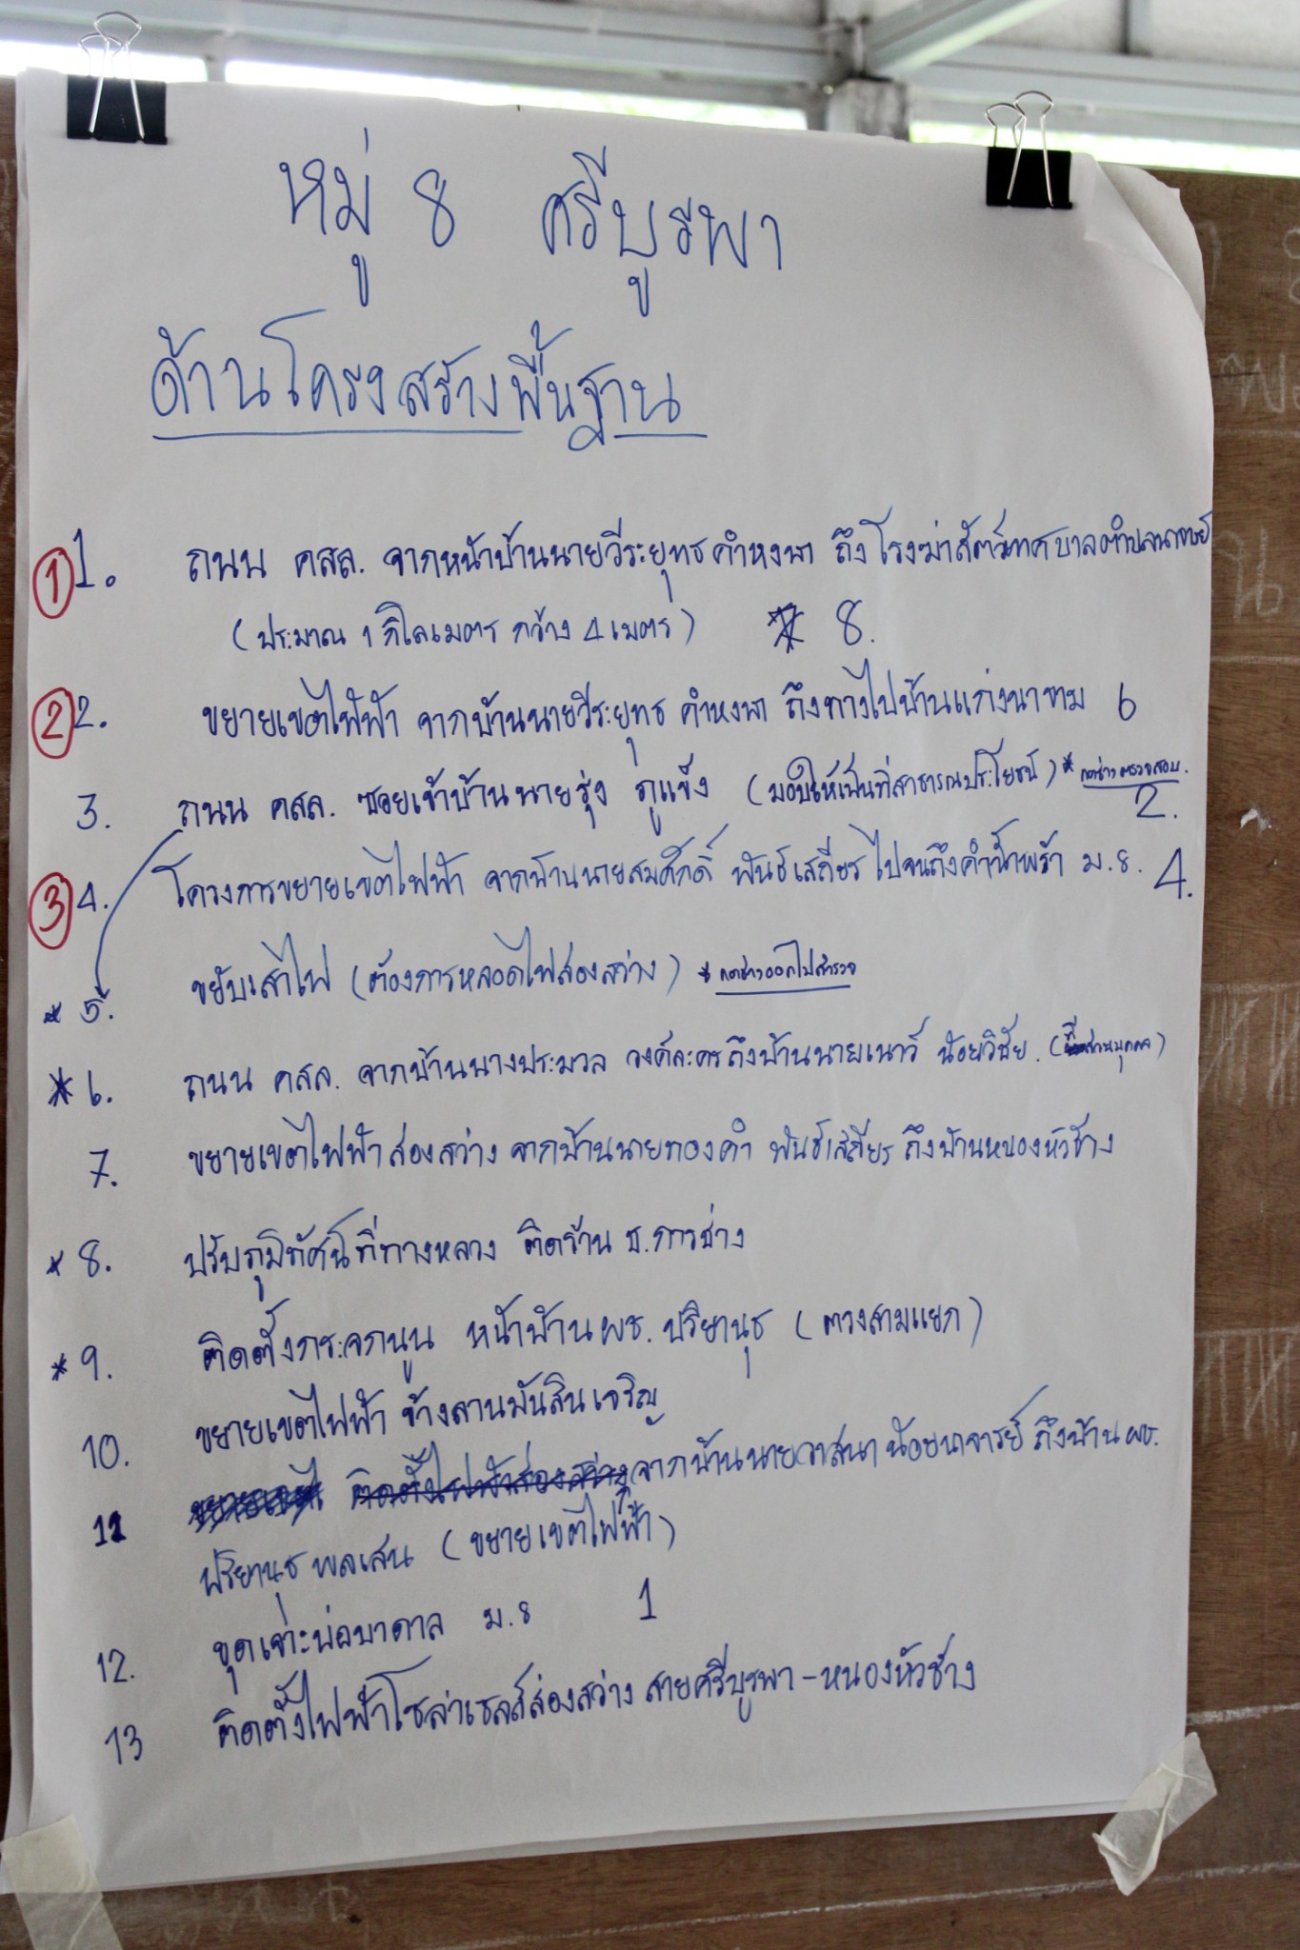 หมู่ 8 ศรีบูรพา
ด้านโครงสร้างพื้นฐาน
① 1. ถนน คสล. จากหน้าบ้านนายวีระยุทธ คำหงษา ถึงโรงฆ่าสัตว์เทศบาลตำบล
(ประมาณ 1 กิโลเมตร กว้าง 4 เมตร) * 8.
② 2. ขยายเขตไฟฟ้า จากบ้านนายวีระยุทธ คำหงษา ถึงทางไปบ้านแก่งนาขาม 6
3. ถนน คสล. ซอยเข้าบ้านนายรุ่ง ภูแข็ง (มอบให้เป็นที่สาธารณประโยชน์) * กองช่างตรวจสอบ.
2.
③ 4. โครงการขยายเขตไฟฟ้า จากบ้านนายสมศักดิ์ พันธ์เสถียร ไปจนถึงคำน้ำพร้า ม.8. 4.
* 5. ขยับเสาไฟ (ต้องการหลอดไฟส่องสว่าง) * กองช่างออกไปสำรวจ
* 6. ถนน คสล. จากบ้านนางประมวล วงศ์ละคร ถึงบ้านนายเนาว์ น้อยวิชัย. (ที่ส่วนบุคคล)
7. ขยายเขตไฟฟ้าส่องสว่าง จากบ้านนายทองคำ พันธ์เสถียร ถึงบ้านหนองหัวช้าง
* 8. ปรับภูมิทัศน์ที่ทางหลวง ติดร้าน ธ.การช่าง
* 9. ติดตั้งกระจกนูน หน้าบ้าน ผช. ปริยานุช (ทางสามแยก)
10. ขยายเขตไฟฟ้า ข้างลานมันสินเจริญ
11 จากบ้านนายวาสนา น้อยนาจารย์ ถึงบ้าน ผช.
ปริยานุช พลเสน (ขยายเขตไฟฟ้า)
12. ขุดเจาะบ่อบาดาล ม.8 1
13 ติดตั้งไฟฟ้าโซล่าเซลล์ส่องสว่าง สายศรีบูรพา - หนองหัวช้าง